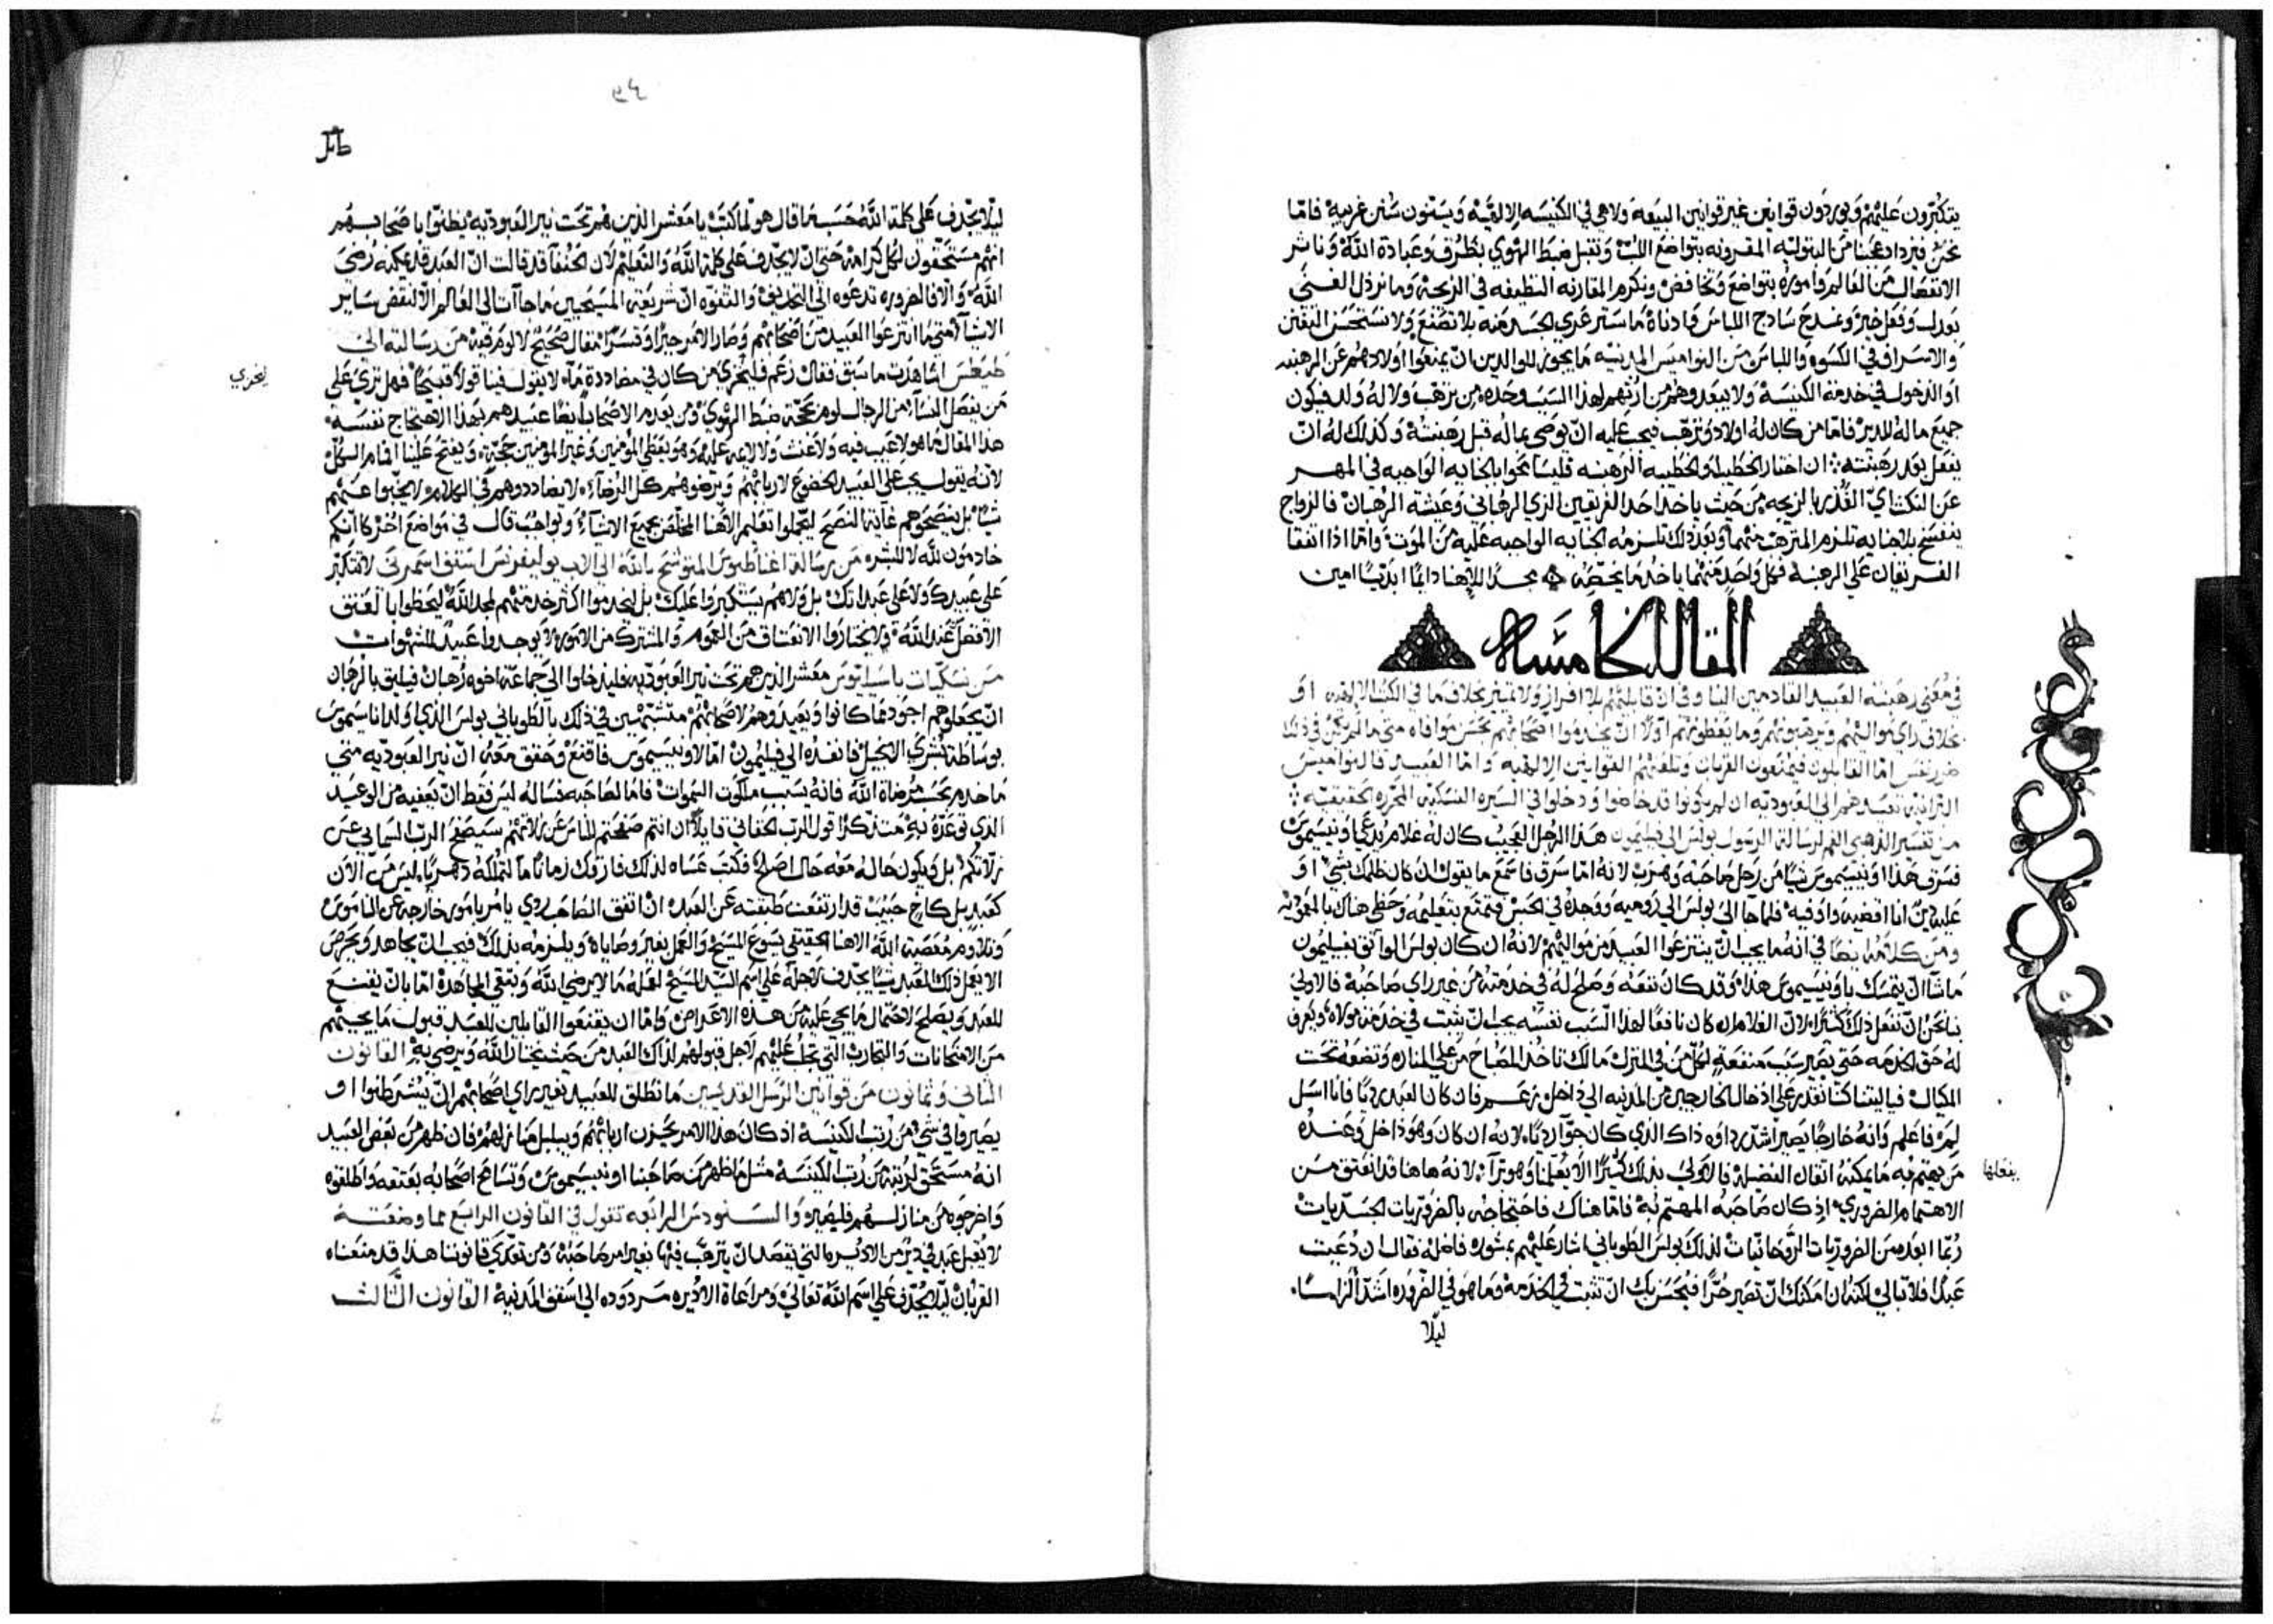 يتكبرون عليهم ويوردون قوانين غير قوانين البيعه ولا هي في الكنيسه الالهيه ويسنون سنن غريبه فامّا
نحن فيزداد عجبنا من البتوليه المقرونه بتواضع اللب ونقبل ضبط الهوي بظرف وعبادة الله وناثر
الانفصال من العالم واموره بتواضع ونكرم المقارنه النظيفه في الزيجه وما نرذل الغني
بعدل وفعل خير ونمدح سادج اللباس ما ستر عري الجسد منه بلا تصنع ولا نستحسن التفنن
والاسراف في الكسوه واللباس من النواميس المدنيه ما يجوز للوالدين ان يمنعوا اولادهم عن الرهبنه
او الدخول في خدمة الكنيسه ولا يبعدوهم من ارثهم لهذا السبب وحده من ترهب ولا له ولد فيكون
جميع ماله للدير فامّا من كان له اولاد وترهب فيجب عليه ان يوصي بماله قبل رهبنته وكذلك له ان
يفعل بعد رهبنته ان اختار الخطيب او الخطيبه الرهبنه فليسا
القدر الزيجه من حيث ياخذ احد الفريقين الزي الرهباني وعيشة الرهبان فالزواج
ينفسخ بلا جنايه تلزم المترهب منهما وبعد ذلك تلزمه الجنايه الواجبه عليه من الموت وامّا اذا اتفقا
الفريقان علي الرهبنه فكل واحد منهما ياخذ ما يخصه مجدًا لالاهنا دايمًا ابديًا امين
المقاله الخامسه
في معني رهبنة العبيد القادمين الينا وفي ان قابليهم بلا افراز ولا تمييز بخلاف ما في الكتب الالهيه او
بخلاف راي مواليهم ويرهبونهم وما يعظونهم اولًا ان يخدموا اصحابهم بحسن موافاه متي ما لم يكن في ذلك
ضرر نفس امّا القابلون فيمنعون القربان وتلعنهم القوانين الالهيه وامّا العبيد فالنواميس
تعيدهم الي العبوديه ان لم يكونوا قد خاضوا ودخلوا في السيره النسكيه المحرره الحقيقيه
من تفسير الذهبي الفم لرسالة الرسول بولس الي فيليمون هذا الرجل العجيب كان له غلام يدعي اونيسيموس
فسرق هذا اونيسيموس شيًا من رجل صاحبه وهرب لانه امّا سرق فاسمع ما يقول ان كان ظلمك بشي او
عليه دين انا اقضيه واوفيه فلما جا الي بولس الي روميه ووجده في الحبس وتمتع بتعليمه وحظي هناك بالمعموديه
ومن كلامه ايضًا في انه ما يجب ان ينتزعوا العبيد من مواليهم لانه ان كان بولس الواثق بفيليمون
ما شا ان يتمسك باونيسيموس هذا وقد كان نفعه وصلح له في خدمته من غير راي صاحبه فالاولي
بنا نحن ان نفعل ذلك كثيرًا لان الغلام ان كان نافعًا لهذا السبب نفسه يجب ان يثبت في خدمة مولاه ويعرف
له حق الخدمه حتي يصير سبب منفعة لكل من في المنزل مالك تاخذ المصباح من علي المناره وتضعه تحت
المكيال فيا ليتنا كنا نقدر علي ادخال الخارجين من المدنيه الي داخل زعم فان كان العبد رديًا فانا اسل
لمَ فاعلم وانه خارجًا يصير اشد رداوه ذاك الذي كان جوّا رديًا لانه ان كان وهو داخل وعنده
من يهتم به ما يمكنه اتقان الفضيله فالاولي بذلك كثيرًا الا يفعلها وهو برّا لانه هاهنا قد انعتق من
يفعلها
الاهتمام الضروري اذ كان صاحبه المهتم به فامّا هناك فاحتجاجه بالضروريات الجسديات
ربّما ابعده من الضروريات الروحانيات لذلك بولس الطوباني اشار عليهم بمشوره فاضله فقال ان دُعيت
عبدًا فلا تبالي لكنه ان امكنك ان تصير حُرًا فيحسن بك ان تثبت في الخدمه وما هو في الضروره اشد الزامًا
ليلا
ليلا يجدف علي كلمة الله حسب ما قال هو لما كتب يا معشر الذين هم تحت نير العبوديه يظنوا باصحابهم
انهم مستحقون لكل كرامه حتي ان لا يجدف علي كلمة الله والتعليم لان الحنفا قد قالت ان العبد قد يمكنه رضي
الله والا فالضروره تدعوه الي التجديف والتفوّه ان شريعة المسيحيين ما جاات الي العالم الا لنقض ساير
الاشيا متي ما انتزعوا العبيد من اصحابهم وصار الامر جبرًا وقسرًا من رسالته الي
طيطس اشاهدت ما سبق فقال زعم فليخزي من كان في مضاددة ما لا يقول فينا قولًا قبيحًا فهل تري علي
ليخزي
من يفصل النسآ من الرجال لوم بحجّة ضبط الهوي ومن يعدم الاصحاب ايضًا عبيدهم بهذا الاحتجاج نفسه
هذا المقال ما هو لا عيب فيه وهو يعطي المومنين وغير المومنين حجّة ويفتح علينا افمام الكل
لانه يقول يجب علي العبيد الخضوع لاربابهم ويرضوهم كل الرضآ لا يضاددوهم في الكلام ولا يخبوا عنهم
شيا بل ينصحوهم غاية النصح ليجملوا تعليم الاهنا المخلص بجميع الاشيآ وبواجب قال في مواضع اخر كانكم
خادمون لله لا للبشر من رسالة اغناطيوس المتوشح بالله الي الاب بوليقربس اسقف اسمرني لا تتكبّر
علي عبيدك ولا علي عبداتك بل ولا هم يستكبروا عليك بل ليخدموا اكثر خدمتهم لمجد الله ليحظوا بالعتق
الافضل عند الله ولا يختاروا الانعتاق من العموم والمشترك من الامور ليلا يوجدوا عبيد للشهوات
من نسكيات باسيليوس معشر الذين هم تحت نير العبوديه فليدخلوا الي جماعة اخوه رهبان فيليق بالرهبان
ان يجعلوهم اجود مما كانوا ويعيدوهم لاصحابهم متشبّهين في ذلك بالطوباني بولس الذي اولد اناسيموس
بوساطة بشري الانجيل فانفذه الي فيليمون امّا لاونيسيموس فاقنع وحقق معه ان نير العبوديه متي
ما خدم بحسب مرضاة الله فانه يسبب ملكوت السموات فامّا لصاحبه فساله ليس فقط ان يعفيه من الوعيد
الذي توعّده به متذكرًا قول الرب الحقاني قايلًا ان انتم صفحتم للناس عن زلاتهم سيصفح الرب السماي عن
زلاتكم بل ويكون حاله معه حال اصلح فكتب عساه لذلك فارقك زمانًا ما لتملكه دهريًا ليس من الان
كعبد بل كاخ حبيب قد ارتفعت طبقته عن العبد ان اتفق الصاحب ردي يامر بامور خارجه عن الناموس
وتلاوم معصية الله الاهنا الحقيقي يسوع المسيح والعمل بغير وصاياه ويلزمه بذلك فيجب ان يجاهد ويحرص
الا يعمل ذلك العبد شيا يجدف لاجله علي اسم السيد المسيح لفعله ما لا يرضي الله وتبقي المجاهدة امّا بان يقنع
للعبد ويصلح لاحتمال ما يجي عليه من هذه الاعراض وامّا ان يقتنعوا القابلين للعبد قبول ما يجيهم
من الامتحانات والتجارب التي تجلب عليهم لاجل قبولهم لذاك العبد من حيث يختار الله ويرضي به القانون
الثاني وثمانون من قوانين الرسل القديسين ما نطلق للعبيد بغير راي اصحابهم ان يشرطنوا او
يصيروا في شي من رتب الكنيسه اذ كان هذا الامر يحزن اربابهم ويبلبل منازلهم فان ظهر من بعض العبيد
انه مستحق لرتبة من رتب الكنيسه مثل ما ظهر من صاحبنا اونيسيموس وتسامح اصحابه بعتقه واطلقوه
واخرجوه من منازلهم فليصير والسنودس الرابعه تقول في القانون الرابع مما وضعته
لا يقبل عبد في دير من الاديره التي يقصد ان يترهب فيها بغير امر صاحبه ومن تعدّي قانوننا هذا قد منعناه
القربان ليلا يجدف علي اسم الله تعالي ومراعاة الاديره مردوده الي اسقف المدينه القانون الثالث